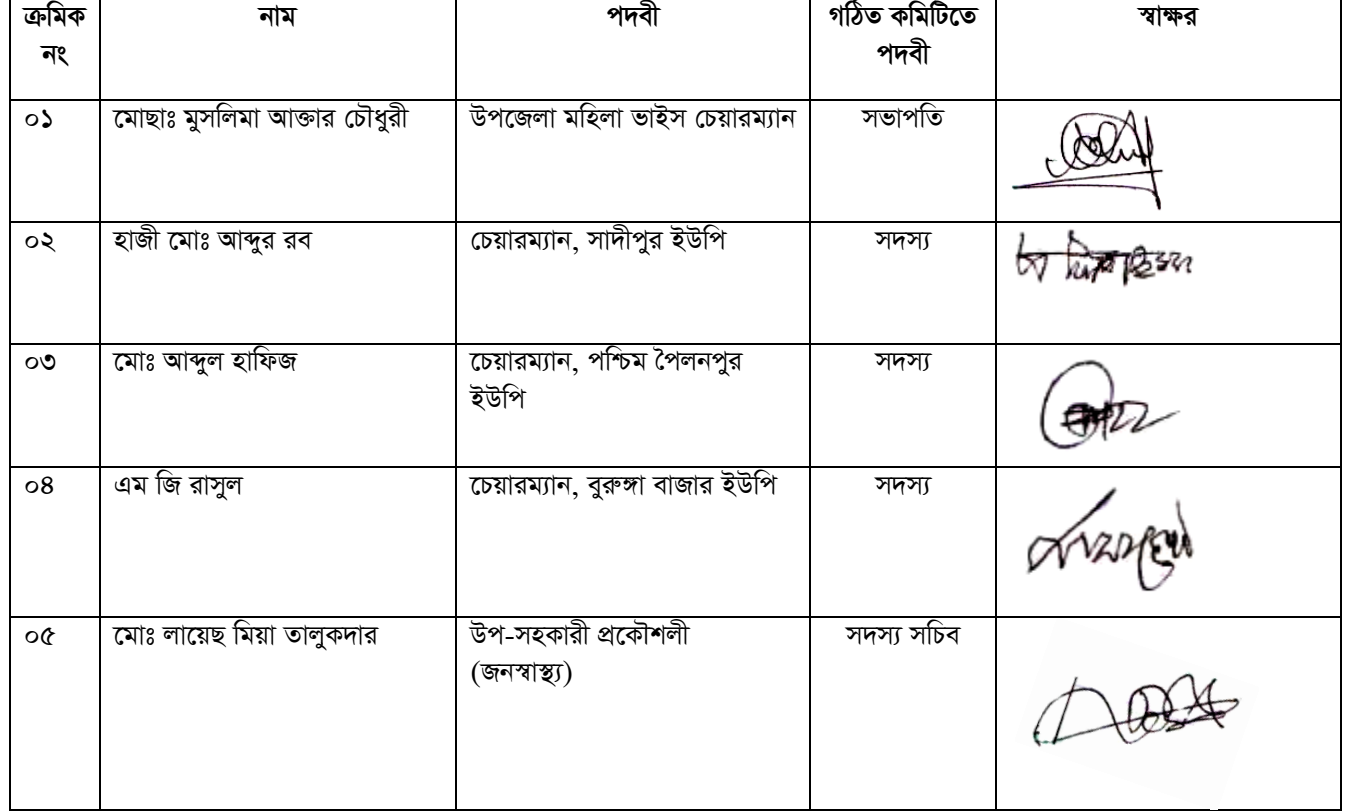 ক্রমিক নং নাম পদবী গঠিত কমিটিতে পদবী স্বাক্ষর
০১ মোছাঃ মুসলিমা আক্তার চৌধুরী উপজেলা মহিলা ভাইস চেয়ারম্যান সভাপতি
০২ হাজী মোঃ আব্দুর রব চেয়ারম্যান, সাদীপুর ইউপি সদস্য
০৩ মোঃ আব্দুল হাফিজ চেয়ারম্যান, পশ্চিম পৈলনপুর ইউপি সদস্য
০৪ এম জি রাসুল চেয়ারম্যান, বুরুঙ্গা বাজার ইউপি সদস্য
০৫ মোঃ লায়েছ মিয়া তালুকদার উপ-সহকারী প্রকৌশলী (জনস্বাস্থ্য) সদস্য সচিব